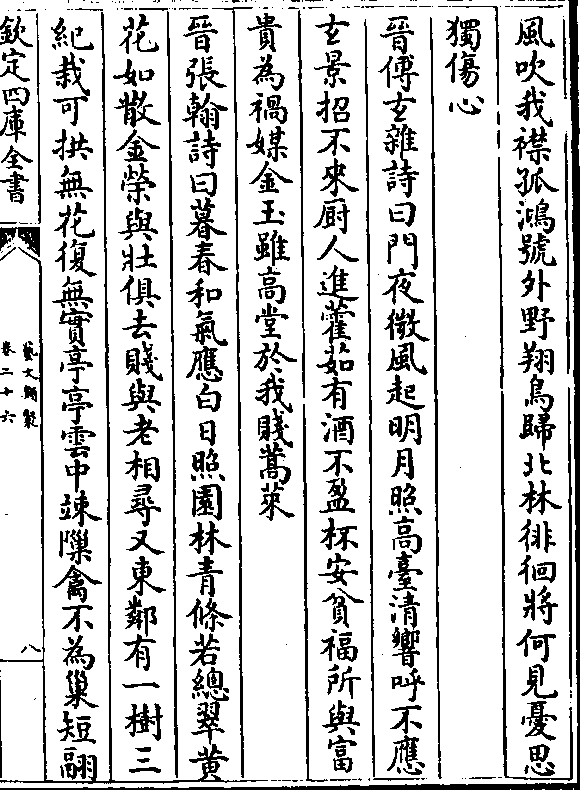 風吹我襟孤鴻號外野翔鳥歸北林徘徊將何見憂思
獨傷心
晉傅𤣥雜詩曰門夜微風起明月照高臺清響呼不應
𤣥景招不來厨人進藿茹有酒不盈杯安貧福所與富
貴為禍媒金玉雖高堂於我賤蒿萊
晉張翰詩曰暮春和氣應白日照園林青條若總翠黄
花如散金榮與壯俱去賤與老相尋又東鄰有一樹三
紀栽可拱無花復無實亭亭雲中竦𨻳禽不為巢短翮
欽定四庫全書
藝文類聚
卷二十六
八